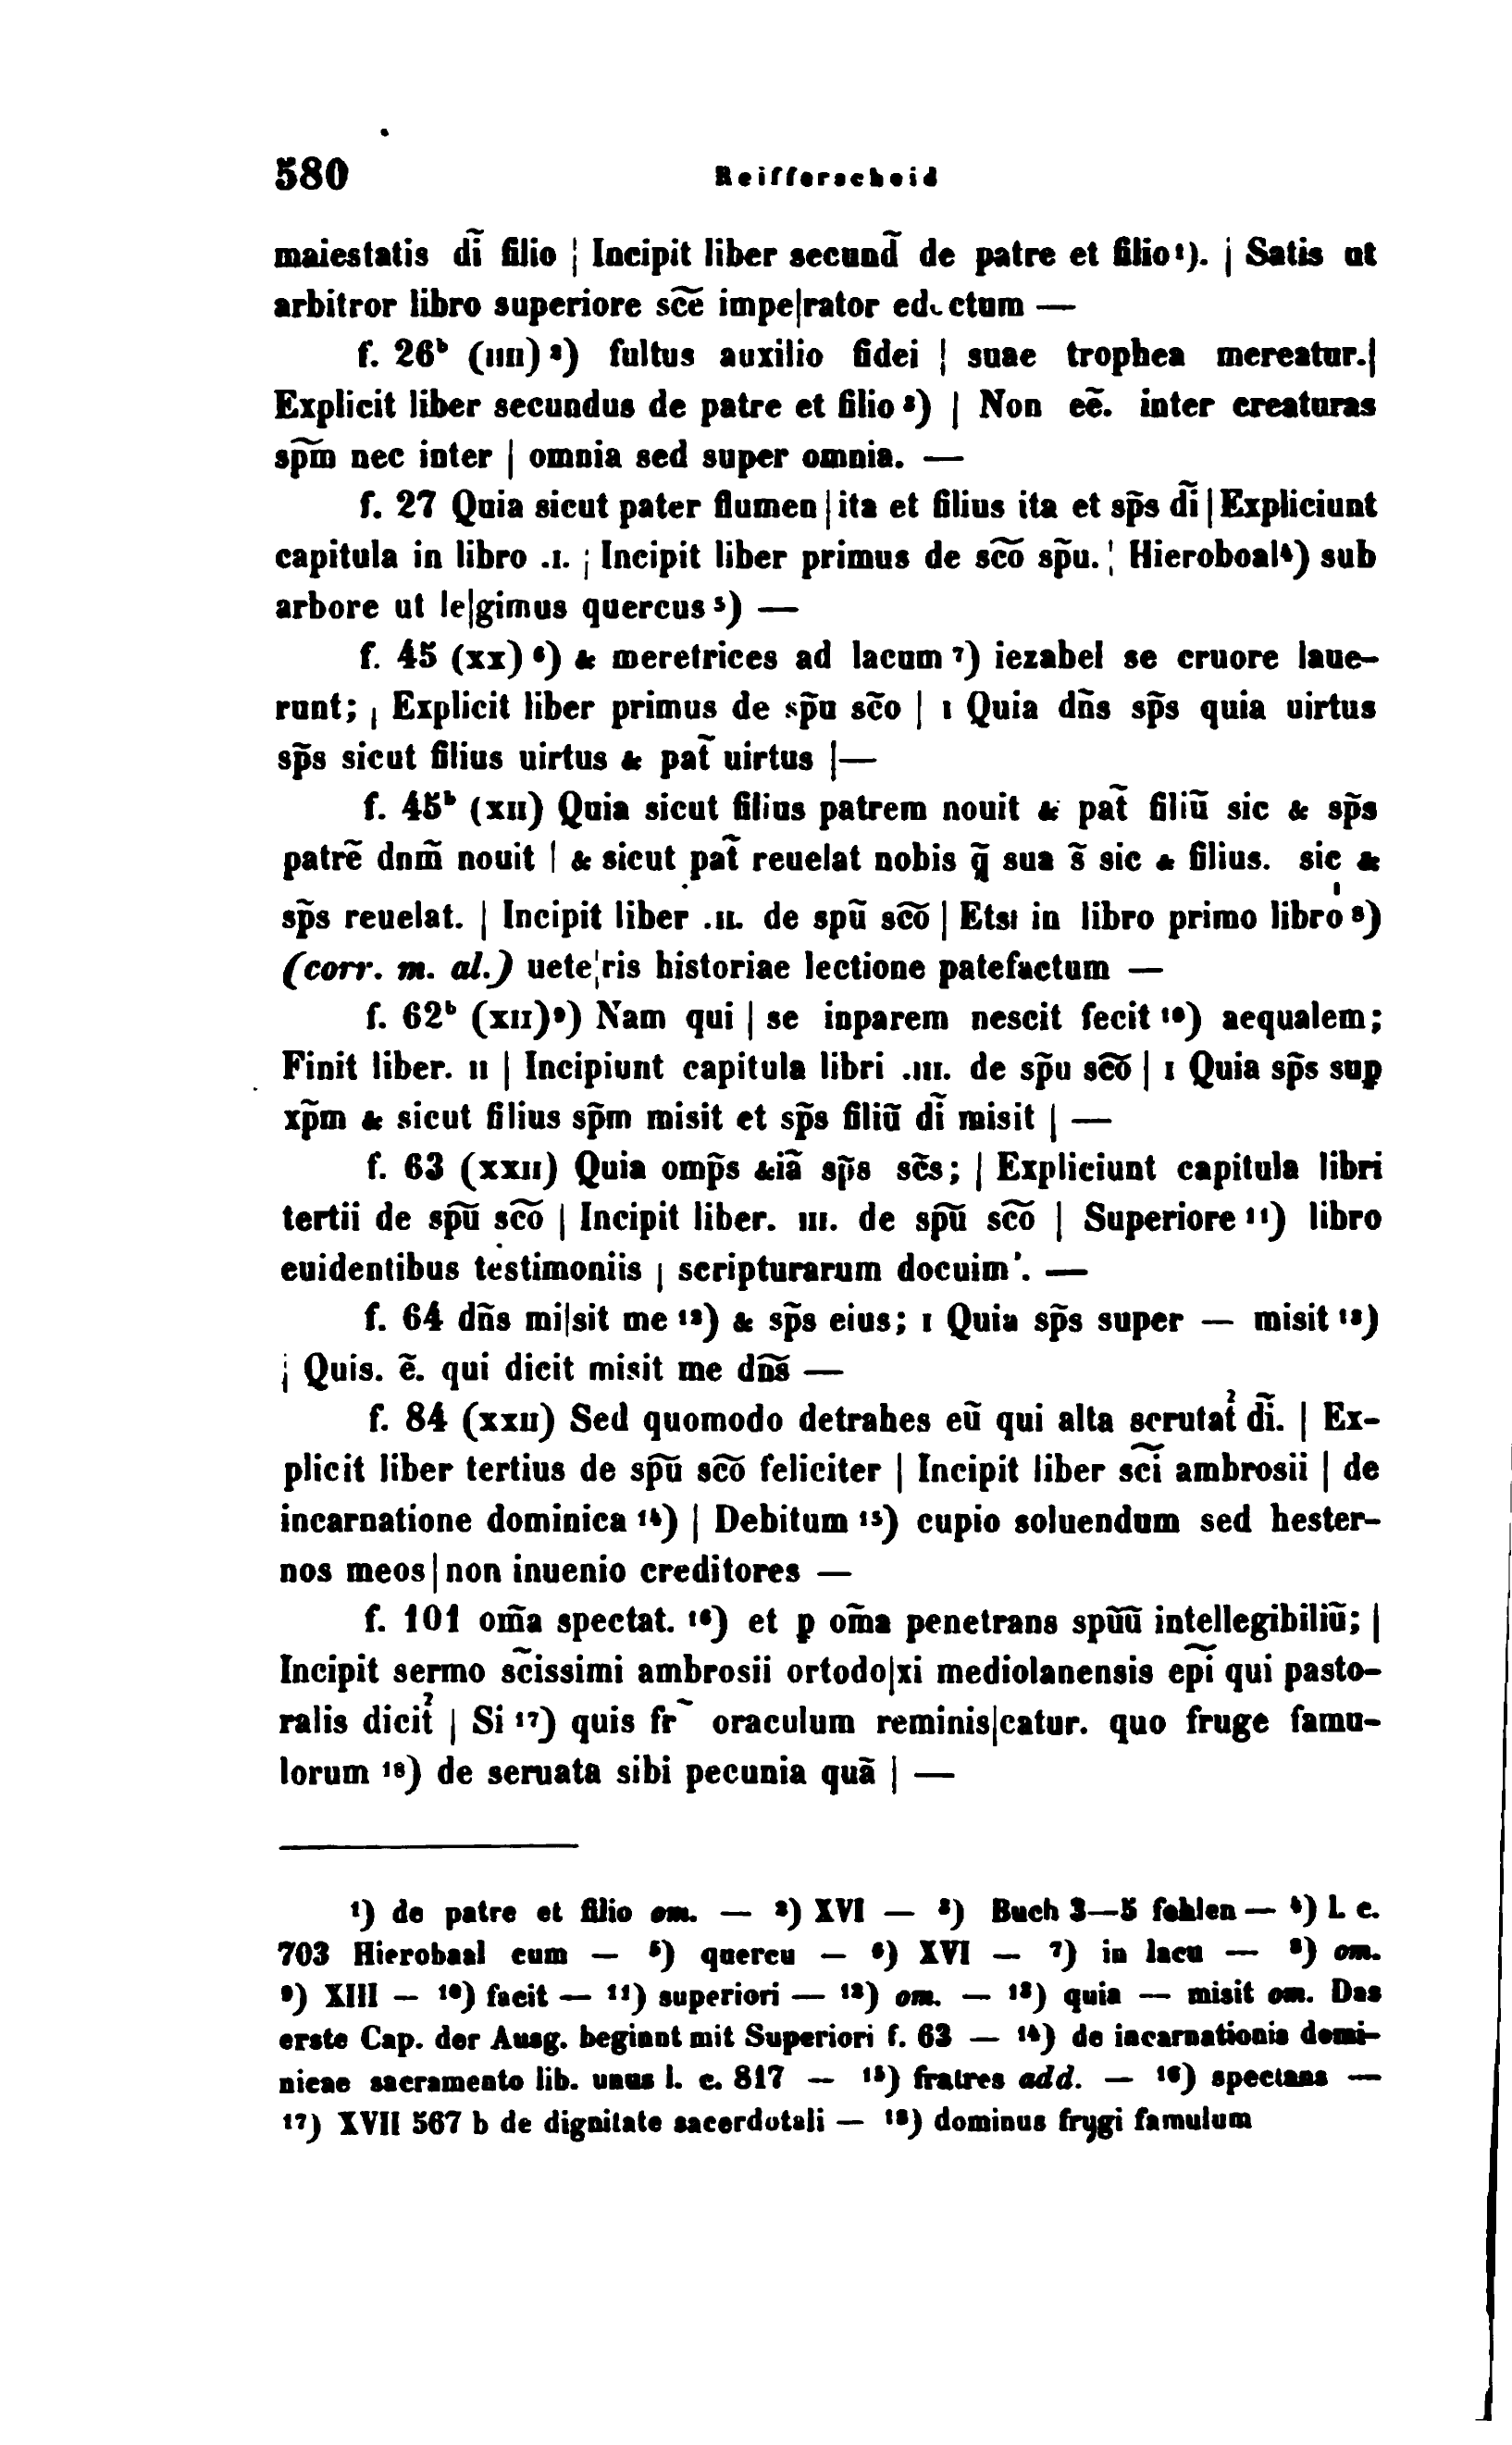 580 Reifferscheid
maiestatis dı̃ filio | Incipit liber secund̃ de patre et filio¹). | Satis ut
arbitror libro superiore sc̃e impe|rator ed. ctum —
f. 26ᵇ (ıııı)²) fultus auxilio fidei | suae trophea mereatur.|
Explicit liber secundus de patre et filio³) | Non eẽ. inter creaturas
sp̃m nec inter | omnia sed super omnia. —
f. 27 Quia sicut pater flumen | ita et filius ita et sp̃s dı̃ | Expliciunt
capitula in libro .ı. | Incipit liber primus de sc̃o sp̃u. | Hieroboal⁴) sub
arbore ut le|gimus quercus⁵) —
f. 45 (xx)⁶) & meretrices ad lacum⁷) iezabel se cruore laue-
runt; | Explicit liber primus de sp̃u sc̃o | ı Quia dñs sp̃s quia uirtus
sp̃s sicut filius uirtus & pat̃ uirtus |—
f. 45ᵇ (xıı) Quia sicut filius patrem nouit & pat̃ filiũ sic & sp̃s
patrẽ dnm̃ nouit | & sicut pat̃ reuelat nobis q̃ sua s̃ sic & filius. sic &
sp̃s reuelat. | Incipit liber .ıı. de spũ sc̃o | Etsı in libro primo libro⁸)
(corr. m. al.) uete|ris historiae lectione patefactum —
f. 62ᵇ (xıı)⁹) Nam qui | se inparem nescit fecit¹⁰) aequalem;
Finit liber. ıı | Incipiunt capitula libri .ııı. de sp̃u sc̃o | ı Quia sp̃s suꝑ
xp̃m & sicut filius sp̃m misit et sp̃s filiũ dı̃ misit | —
f. 63 (xxıı) Quia omp̃s &iã sp̃s sc̃s; | Expliciunt capitula libri
tertii de sp̃u sc̃o | Incipit liber. ııı. de sp̃u sc̃o | Superiore¹¹) libro
euidentibus testimoniis | scripturarum docuim'. —
f. 64 dñs mi|sit me¹²) & sp̃s eius; ı Quia sp̃s super — misit¹³)
| Quis. ẽ. qui dicit misit me dñs —
f. 84 (xxıı) Sed quomodo detrahes eũ qui alta scrutat̉ dı̃. | Ex-
plicit liber tertius de sp̃u sc̃o feliciter | Incipit liber sc̃i ambrosii | de
incarnatione dominica¹⁴) | Debitum¹⁵) cupio soluendum sed hester-
nos meos | non inuenio creditores —
f. 101 om̃a spectat.¹⁶) et ꝑ om̃a penetrans spũũ intellegibiliũ; |
Incipit sermo sc̃issimi ambrosii ortodo|xi mediolanensis ep̃i qui pasto-
ralis dicit̉ | Si¹⁷) quis fr̃ oraculum reminis|catur. quo fruge famu-
lorum¹⁸) de seruata sibi pecunia quã | —
¹) de patre et filio om. — ²) XVI — ³) Buch 3—5 fehlen — ⁴) l. c.
703 Hierobaal cum — ⁵) quercu — ⁶) XVI — ⁷) in lacu — ⁸) om.
⁹) XIII — ¹⁰) facit — ¹¹) superiori — ¹²) om. — ¹³) quia — misit om. Das
erste Cap. der Ausg. beginnt mit Superiori f. 63 — ¹⁴) de incarnationis domi-
nicae sacramento lib. unus l. c. 817 — ¹⁵) fratres add. — ¹⁶) spectans —
¹⁷) XVII 567 b de dignitate sacerdotali — ¹⁸) dominus frygi famulum